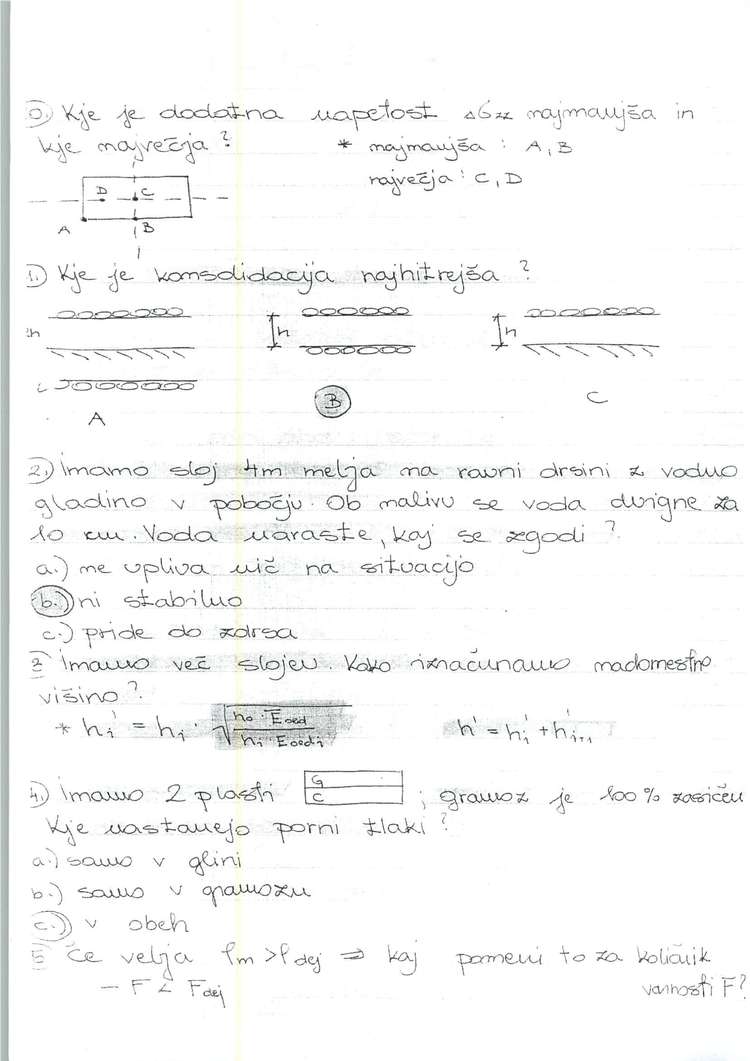 0.) Kje je dodatna napetost ΔGzz najmanjša in
kje največja? * najmanjša: A, B
največja: C, D
D C
A B
1.) Kje je konsolidacija najhitrejša?
h h
A B C
2.) Imamo sloj 4m melja na ravni drsini z vodno
gladino v pobočju. Ob nalivu se voda dvigne za
10 cm. Voda naraste, kaj se zgodi?
a.) ne vpliva nič na situacijo
b.) ni stabilno
c.) pride do zdrsa
3 Imamo več slojev. Kako izračunamo nadomestno
višino?
* hi' = hi · √(ho · Eoed / hi · Eoedi) h' = hi' + hi+1'
4.) Imamo 2 plasti G C ; gramoz je 100% zasičen
Kje nastanejo porni tlaki?
a.) samo v glini
b.) samo v gramozu
c.) v obeh
5 Če velja ρm > ρdej ⇒ kaj pomeni to za količnik
varnosti F?
– F < Fdej